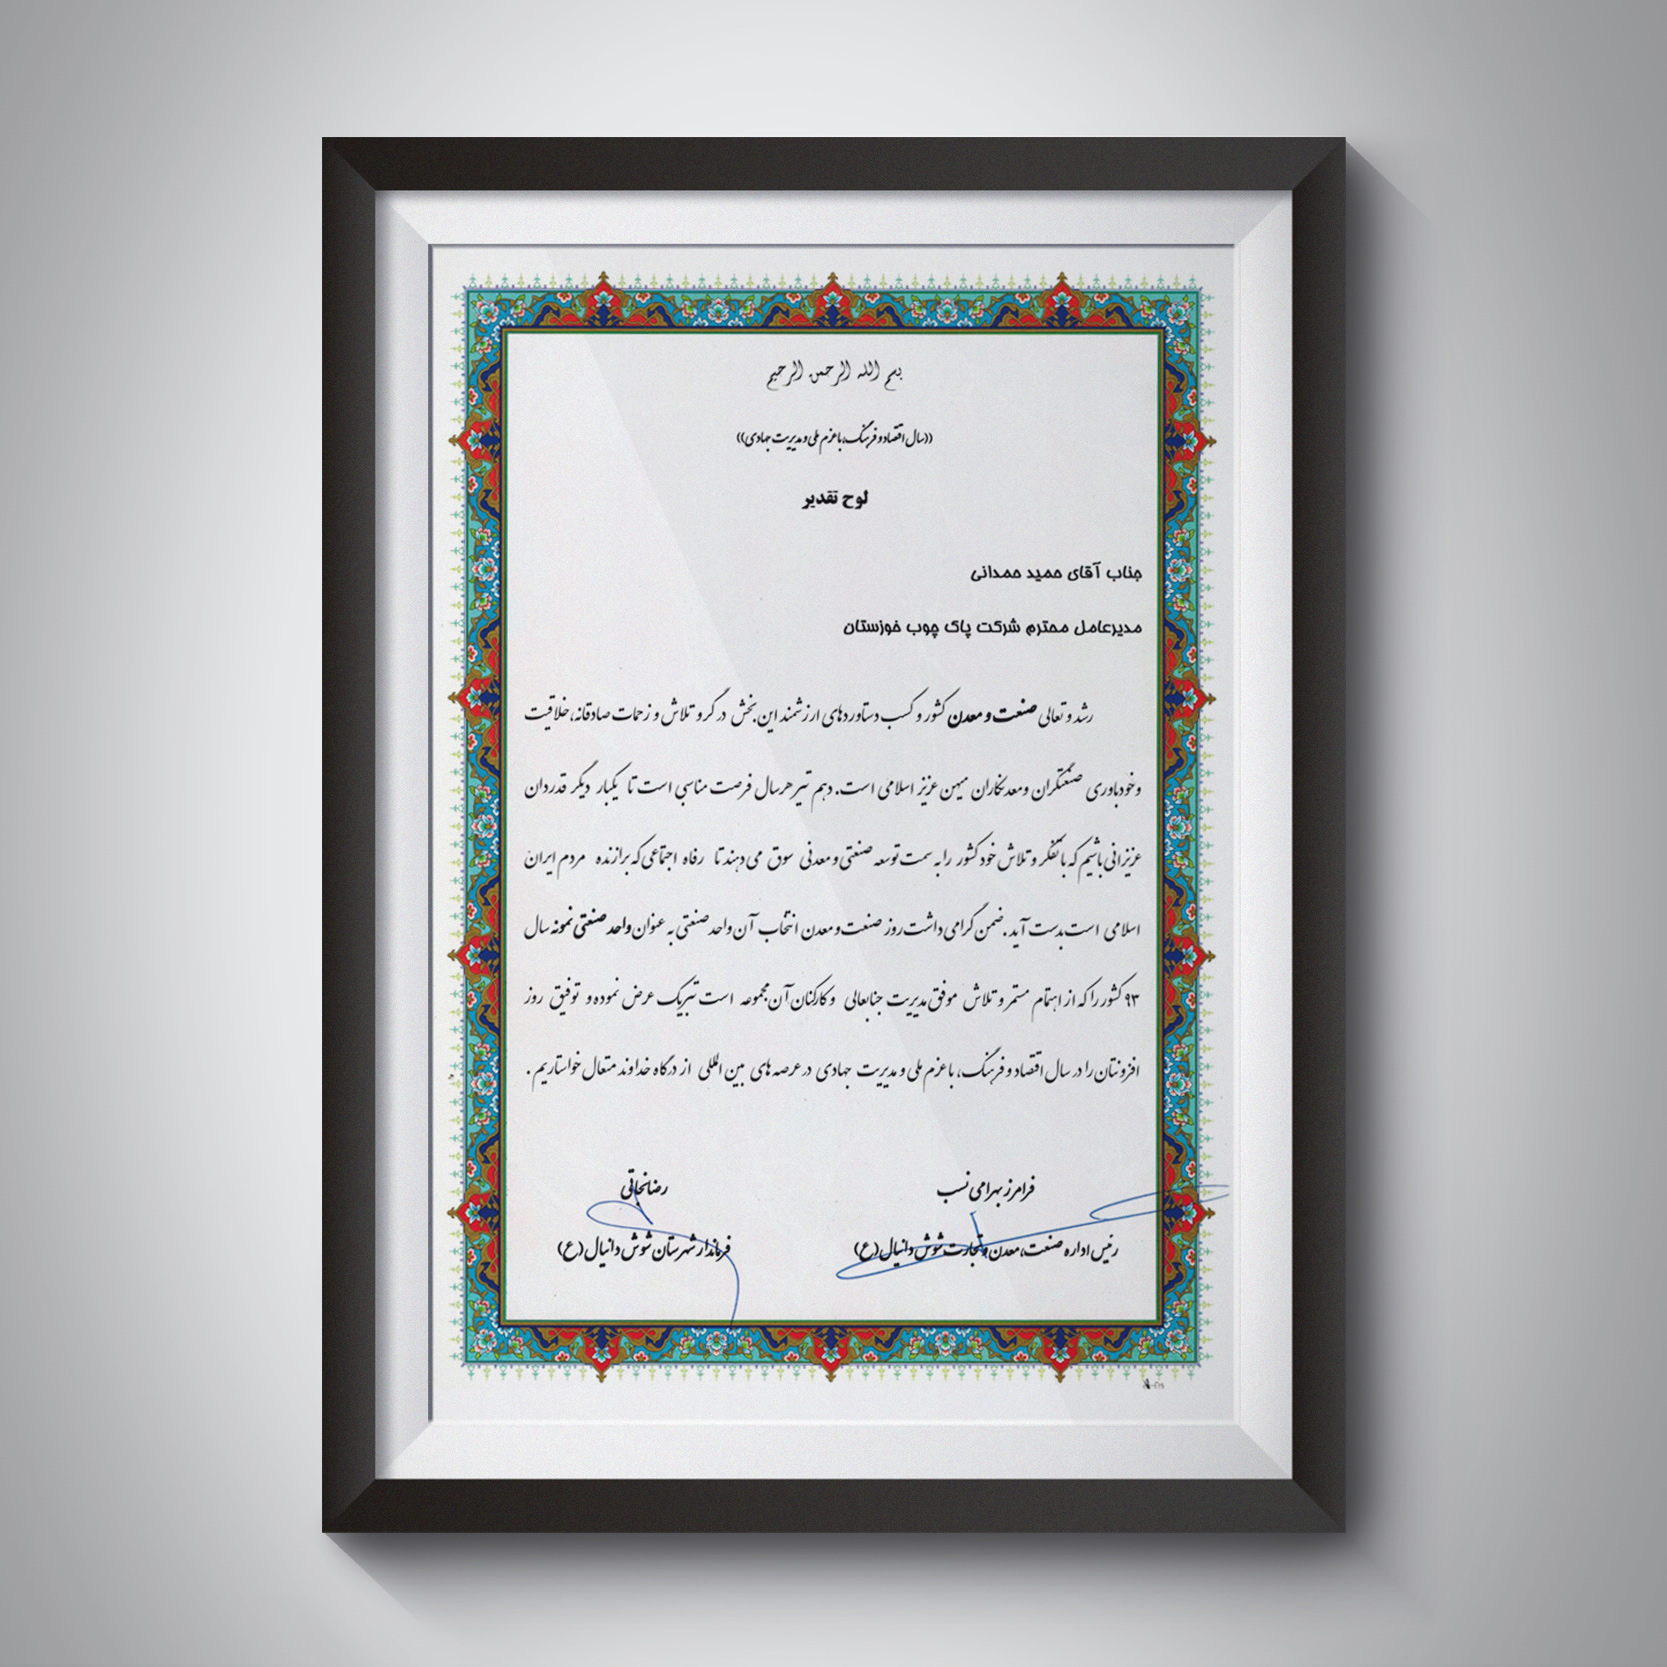 بسم الله الرحمن الرحیم
((سال اقتصاد و فرهنگ، با عزم ملی و مدیریت جهادی))
لوح تقدیر
جناب آقای حمید حمدانی
مدیرعامل محترم شرکت پاک چوب خوزستان
رشد و تعالی صنعت و معدن کشور و کسب دستاوردهای ارزشمند این بخش در گرو تلاش و زحمات صادقانه، خلاقیت
و خودباوری صنعتگران و معدنکاران میهن عزیز اسلامی است. دهم تیر هر سال فرصت مناسبی است تا یکبار دیگر قدردان
عزیزانی باشیم که با تفکر و تلاش خود کشور را به سمت توسعه صنعتی و معدنی سوق می دهند تا رفاه اجتماعی که برازنده مردم ایران
اسلامی است بدست آید. ضمن گرامی داشت روز صنعت و معدن انتخاب آن واحد صنعتی به عنوان واحد صنعتی نمونه سال
۹۳ کشور را که از اهتمام مستمر و تلاش موفق مدیریت جنابعالی و کارکنان آن مجموعه است تبریک عرض نموده و توفیق روز
افزونتان را در سال اقتصاد و فرهنگ، با عزم ملی و مدیریت جهادی در عرصه های بین المللی از درگاه خداوند متعال خواستاریم.
فرامرز بهرامی نسب
رئیس اداره صنعت، معدن و تجارت شوش دانیال (ع)
رضا نجاتی
فرماندار شهرستان شوش دانیال (ع)